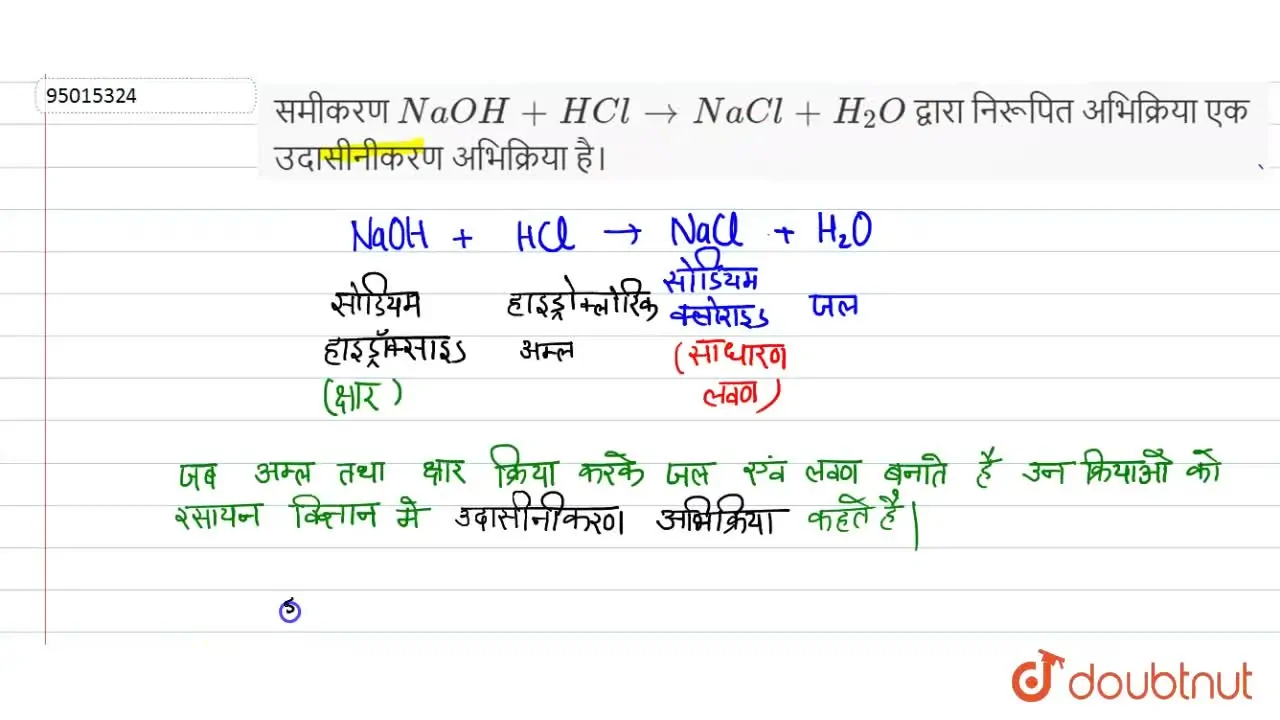 95015324
समीकरण NaOH + HCl → NaCl + H₂O द्वारा निरूपित अभिक्रिया एक
उदासीनीकरण अभिक्रिया है।
NaOH + HCl → NaCl + H₂O
सोडियम हाइड्रोक्लोरिक सोडियम
क्लोराइड जल
हाइड्रॉक्साइड अम्ल (साधारण
(क्षार) लवण)
जब अम्ल तथा क्षार क्रिया करके जल एवं लवण बनाते है उन क्रियाओ को
रसायन विज्ञान मे उदासीनीकरण अभिक्रिया कहते है|
doubtnut